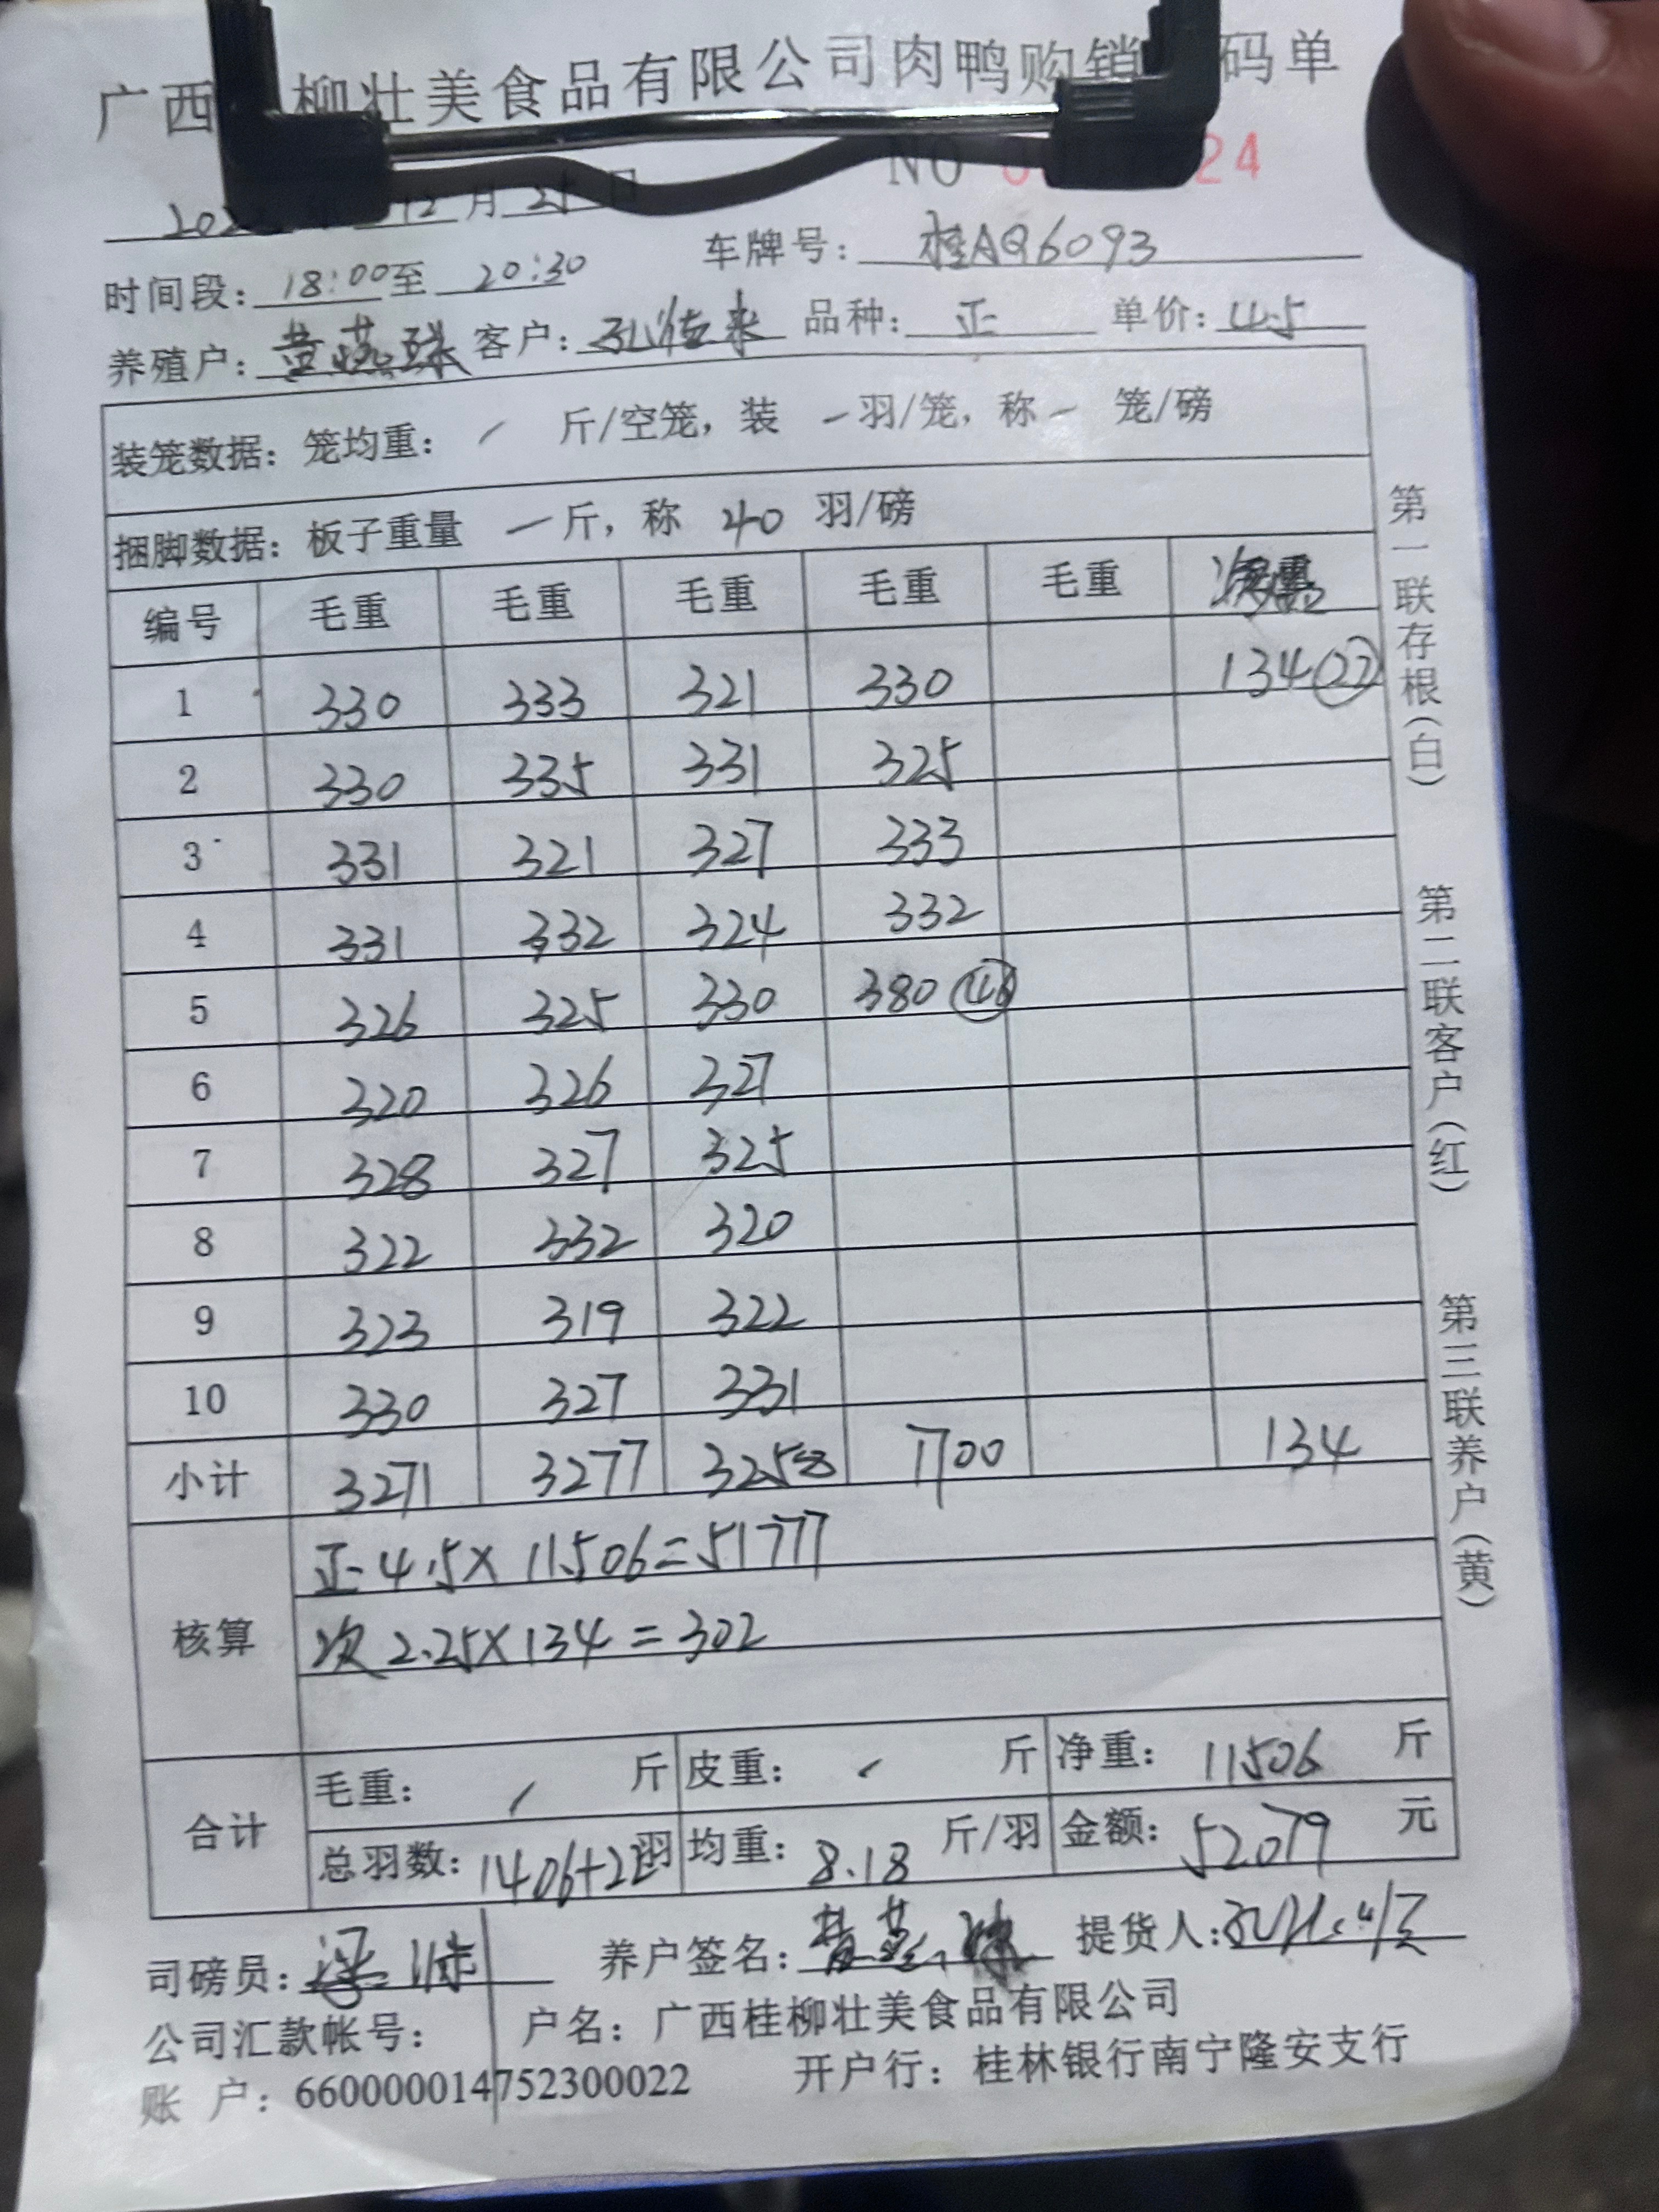 广西 柳壮美食品有限公司肉鸭购销 码单
NO 24
12月25日
时间段：18:00至 20:30 车牌号：桂AQ6093
养殖户：黄燕珠 客户： 品种：正 单价：4.5
装笼数据：笼均重：/ 斤/空笼，装 - 羽/笼，称 - 笼/磅
捆脚数据：板子重量 - 斤，称 40 羽/磅
编号 毛重 毛重 毛重 毛重 毛重
1 330 333 321 330 134 (22)
2 330 335 331 325
3 331 321 327 333
4 331 332 324 332
5 326 325 330 380 (46)
6 320 326 327
7 328 327 325
8 322 332 320
9 323 319 322
10 330 327 331
小计 3271 3277 3258 1700 134
核算
正 4.5×11506=51777
次 2.25×134=302
合计
毛重：/ 斤 皮重：/ 斤 净重：11506 斤
总羽数：1406+22羽 均重：8.18 斤/羽 金额：52079 元
司磅员： 养户签名：黄燕珠 提货人：
公司汇款帐号： 户名：广西桂柳壮美食品有限公司
账 户：660000014752300022 开户行：桂林银行南宁隆安支行
第一联存根（白） 第二联客户（红） 第三联养户（黄）